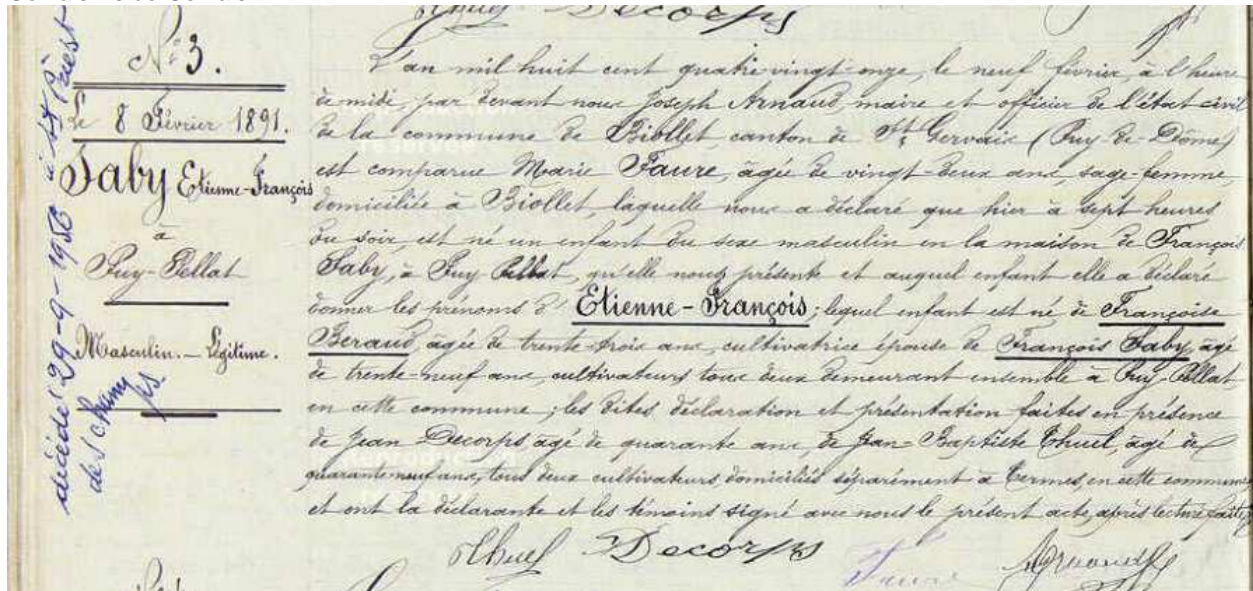 Thuel Decorps
N° 3.
Le 8 Février 1891.
Saby Etienne-François
à
Puy-Pellat
Masculin. — Légitime.
décédé 29-9-1950 à St Priest
des champs
L'an mil huit cent quatre vingt-onze, le neuf février, à l'heure
de midi, par devant nous Joseph Arnaud, maire et officier de l'état-civil
de la commune de Biollet, canton de St Gervais (Puy-de-Dôme)
est comparue Marie Faure, âgée de vingt-deux ans, sage-femme,
domiciliée à Biollet, laquelle nous a déclaré que hier à sept heures
du soir, est né un enfant du sexe masculin en la maison de François
Saby, à Puy Pellat, qu'elle nous présente et auquel enfant elle a déclaré
donner les prénoms d'Etienne-François; lequel enfant est né de Françoise
Beraud, âgée de trente-trois ans, cultivatrice épouse de François Saby, âgé
de trente-neuf ans, cultivateurs tous deux demeurant ensemble à Puy-Pellat
en cette commune; les dites déclaration et présentation faites en présence
de Jean Decorps âgé de quarante ans, de Jean-Baptiste Thuel, âgé de
quarante neuf ans, tous deux cultivateurs, domiciliés séparément à Termes, en cette commune,
et ont la déclarante et les témoins signé avec nous le présent acte, après lecture faite.
Thuel Decorps Faure Arnaud